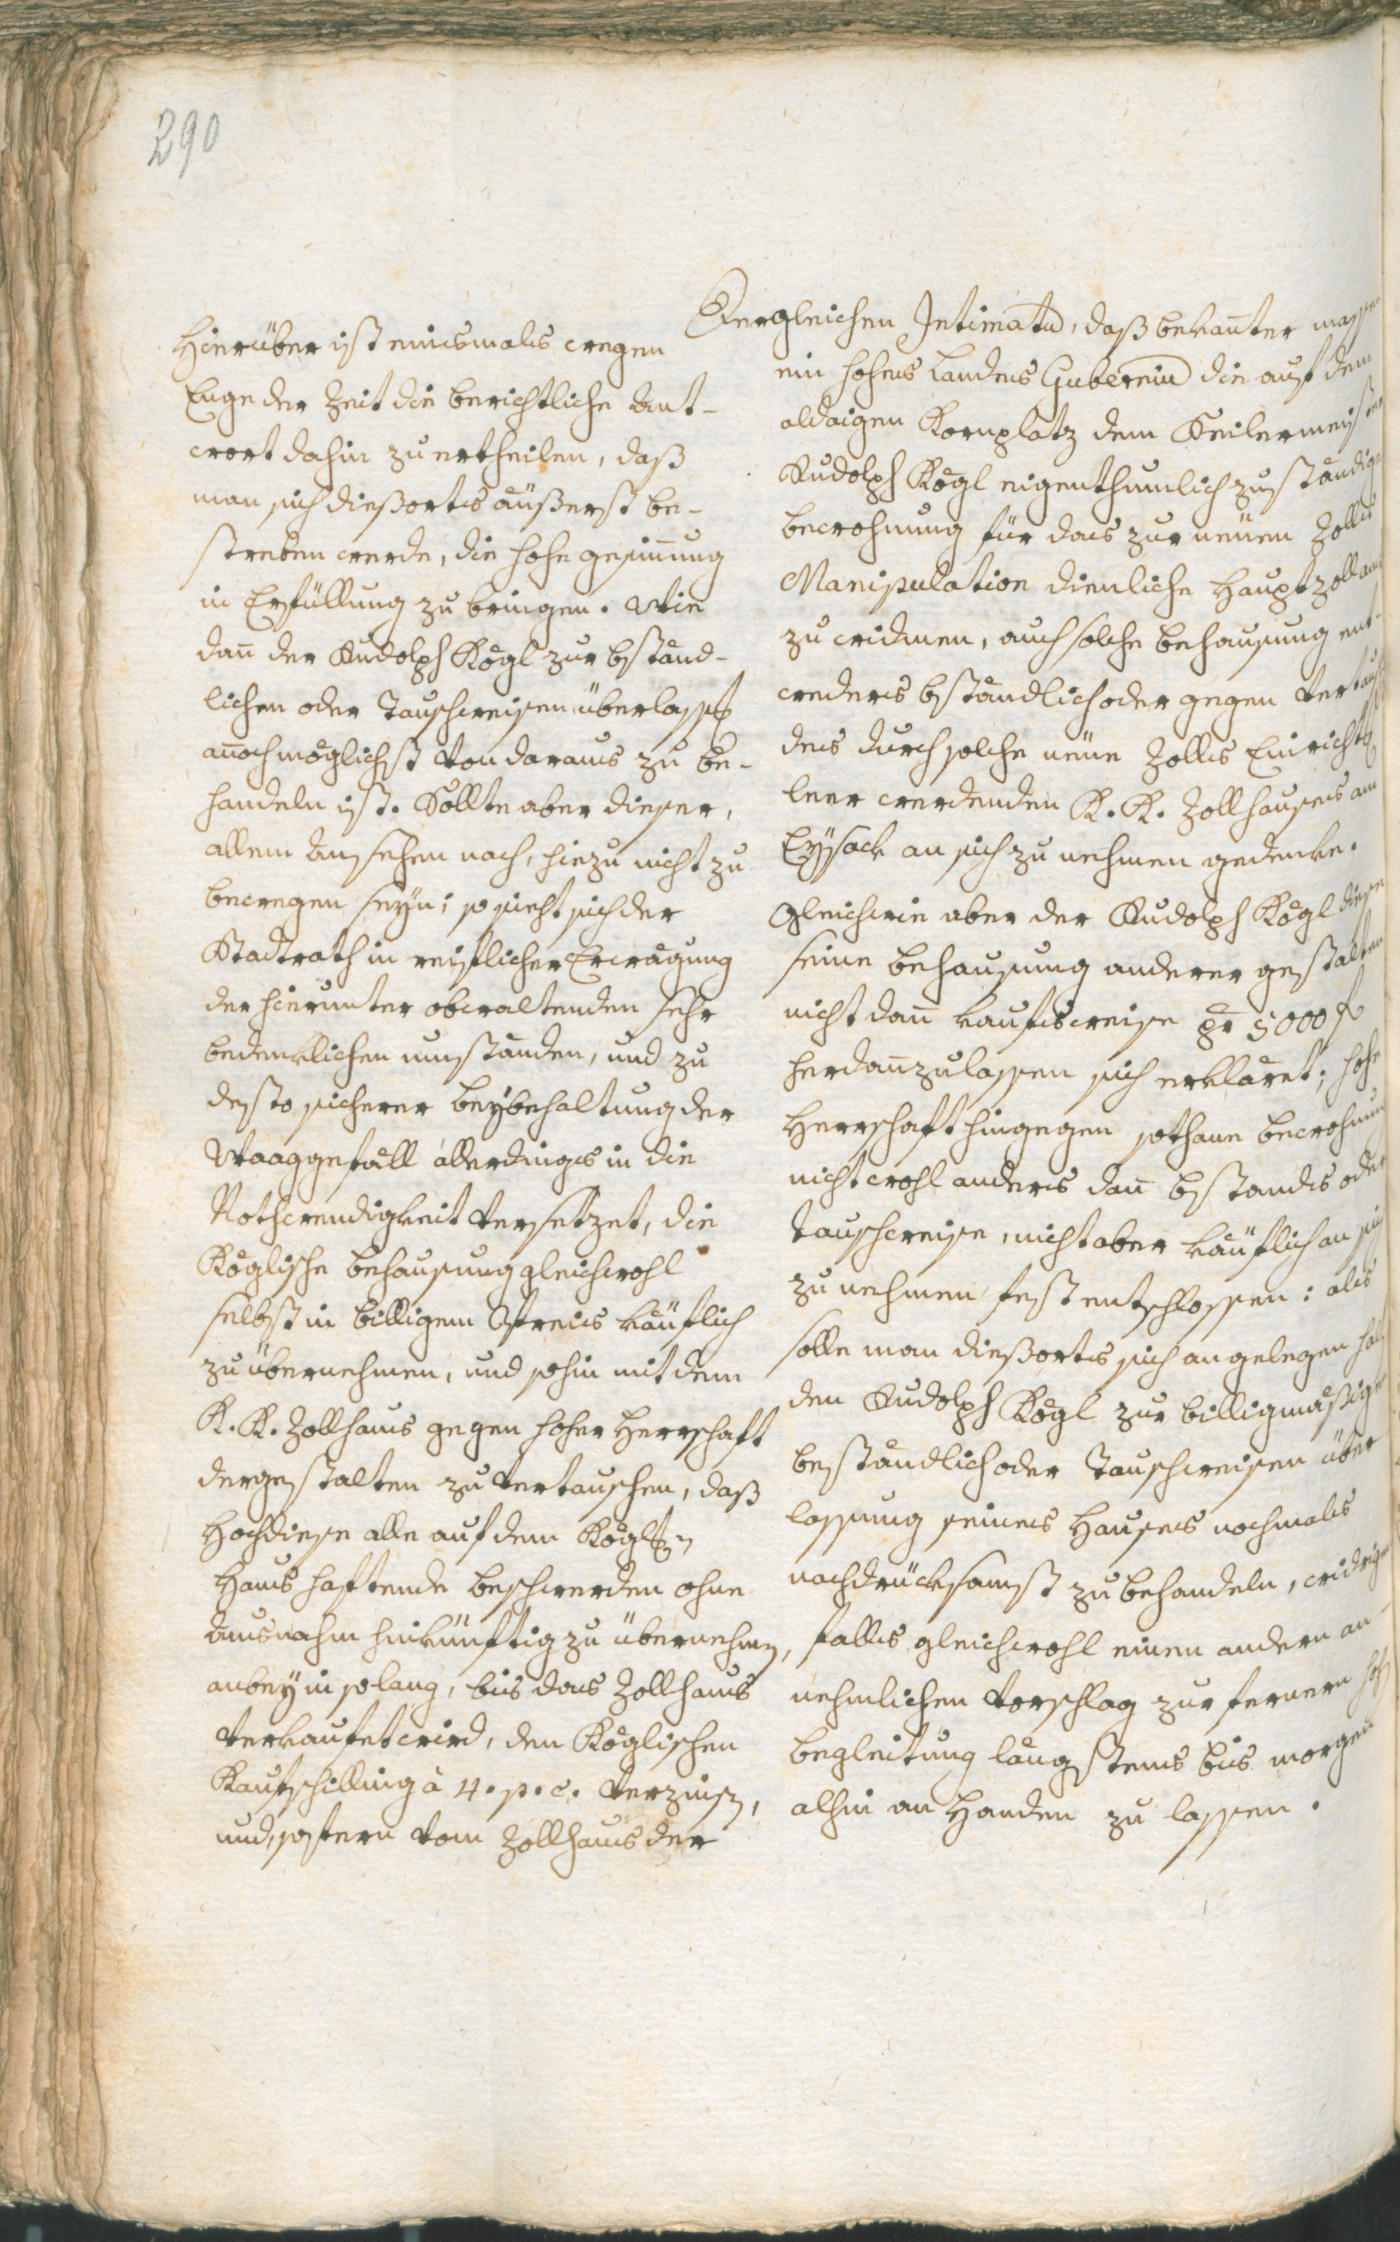 290
Hierüber ist einsmals wegen
Enge der Zeit die berichtliche Ant-
wort dahin zu ertheilen, daß
man sich dießorts äußerst be-
streben werde, die hohe gesinnung
in Erfüllung zu bringen. Wie
dañ der Rudolph Kögl zur bständ-
lichen oder Tauschweisen überlassg
añoch möglichst von daraus zu be-
handeln ist. Sollte aber dieser,
allem Ansehen nach, hiezu nicht zu
bewegen seyn; so sieht sich der
Stadtrath in reiflicher Erwägung
der hierunter obwaltenden sehr
bedenklichen umständen, und zu
desto sicherer beybehaltung der
Waaggefäll allerdings in die
Nothwendigkeit versetzet, die
Köglische behausung gleichwohl
selbst in billigem Preis käuflich
zu übernehmen, und sohin mit dem
K. K. Zollhaus gegen hoher Herrschaft
dergestalten zu vertauschen, daß
Hochdiese alle auf dem Köglschen
Haus haftende beschwerden ohne
Ausnahm hinkünftig zu übernehmen,
anbey in solang, bis das Zollhaus
verkaufet wird, den Köglischen
Kaufschilling à 4. p. c. verzinsen,
und, sofern vom Zollhaus der
Dergleichen Intimatū, daß bekañter massen
ein hohes Landes Guberniū die auf dem
aldaigen Kornplatz dem Seilermeister
Rudolph Kögl eigenthumlich zuständige
bewohnung für das zur neüen Zolls
Manipulation dienliche Hauptzollamt
zu widmen, auch solche behausung ent-
weders bständlich oder gegen vertausch
des durch solche neüe Zolls Einrichtg
leer werdenden K. K. Zollhauses am
Eysack an sich zu nehmen gedenke.
Gleichwie aber der Rudolph Kögl diese
seine behausung anderer gestalten
nicht dañ kaufsweise pr 5000 f
herdañzulassen sich erkläret; hohe
Herrschaft hingegen sothane bewohnung
nicht wohl anders dañ bstands oder
tauschweise, nicht aber käuflich an sich
zu nehmen fest entschlossen: als
solle man dießorts sich angelegen haltē
den Rudolph Kögl zur billigmäßigen
beständlich oder Tauschweisen über
lassung seines Hauses nochmals
nachdrücksamst zu behandeln, widrigen
falls gleichwohl einen andern an-
nehmlichen vorschlag zur fernern hohen
begleitung längstens bis morgen
alhin an Handen zu lassen.